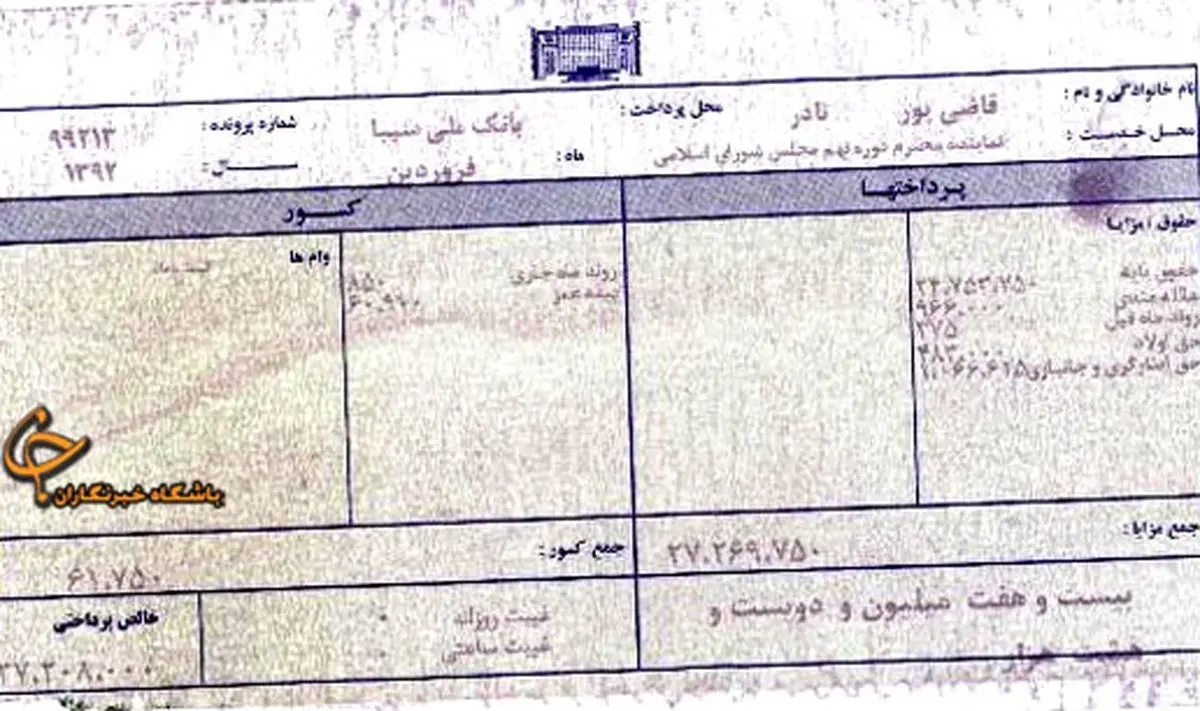 نام خانوادگی و نام : قاضی پور نادر محل پرداخت : بانک ملی سیبا شماره پرونده : ۹۹۲۱۳
محل خدمت : نماینده محترم دوره نهم مجلس شورای اسلامی ماه : فروردین سال : ۱۳۹۲
پرداختها کسور
حقوق و مزایا
وام ها
حقوق پایه ۲۴.۷۵۳.۷۵۰
عائله مندی ۹۶۶.۰۰۰
روند ماه قبل ۳۷۵
حق اولاد ۴۸۳.۰۰۰
حق ایثارگری و جانبازی ۱.۰۶۶.۶۲۵
روند ماه جاری ۸۵۰
بیمه عمر ۶۰.۹۰۰
باشگاه خبرنگاران
جمع مزایا : ۲۷.۲۶۹.۷۵۰ جمع کسور : ۶۱.۷۵۰
بیست و هفت میلیون و دویست و
هشت هزار
غیبت روزانه ۰
غیبت ساعتی ۰
خالص پرداختی
۲۷.۲۰۸.۰۰۰